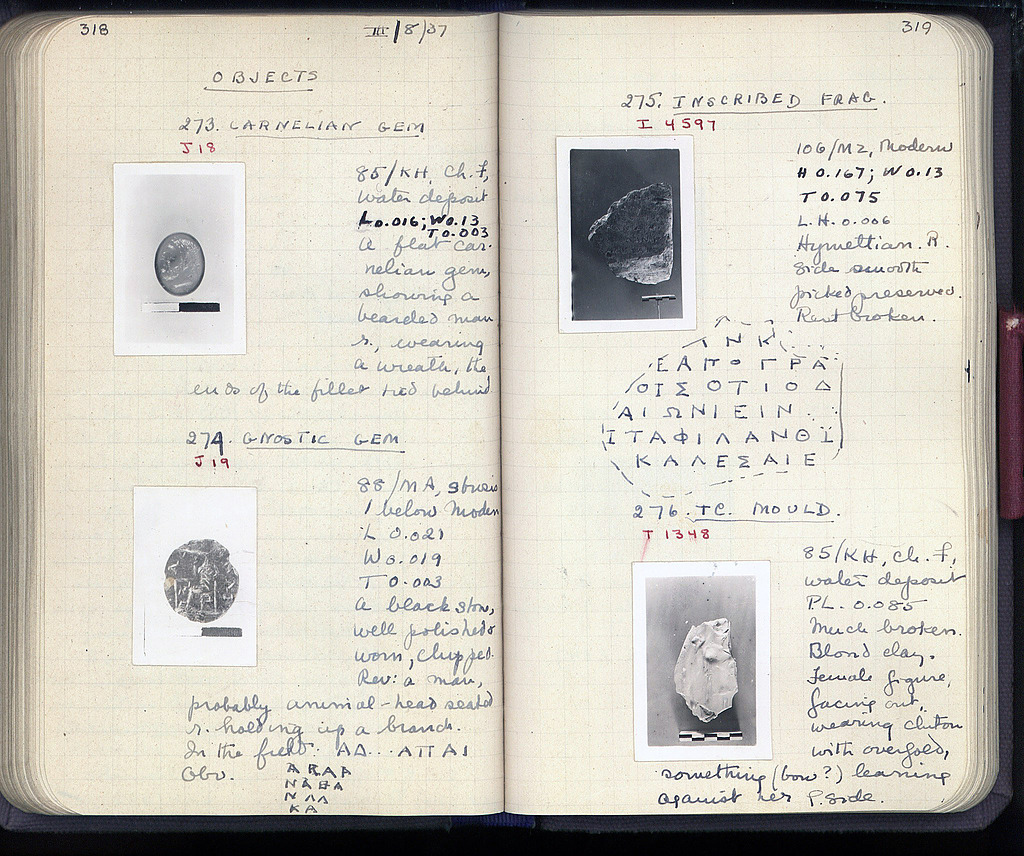 318
III/8/37
OBJECTS
273. CARNELIAN GEM
J 18
85/KH, Ch. F,
water deposit
L 0.016; W 0.13
T 0.003
a flat car-
nelian gem,
showing a
bearded man
r., wearing
a wreath, the
ends of the fillet tied behind
274. GNOSTIC GEM
J 19
88/MA,
1 below Modern
L 0.021
W 0.019
T 0.003
a black stone,
well polished &
worn, chipped.
Rev: a man,
probably animal-head seated
r. holding up a branch.
In the field: ΑΔ.. ΑΠΑΙ
Obv.
ΝΛΛ
ΚΑ
319
275. INSCRIBED FRAG.
I 4597
106/MZ, Modern
H 0.167; W 0.13
T 0.075
L.H. 0.006
Hymettian. R.
side smooth
picked preserved.
Rest broken.
ΙΝΚ
ΕΑΠΟΓΡΑ
ΟΙΣΟΤΙΟΔ
ΑΙΩΝΙΕΙΝ
ΙΤΑΦΙΛΑΝΘΙ
ΚΑΛΕΣΑΙΕ
276. TC. MOULD.
T 1348
85/KH, Ch. F,
water deposit
PL. 0.085
Much broken.
Blond clay.
Female figure,
facing out,
wearing chiton
with overfold,
something (bow?) leaning
against her l. side.